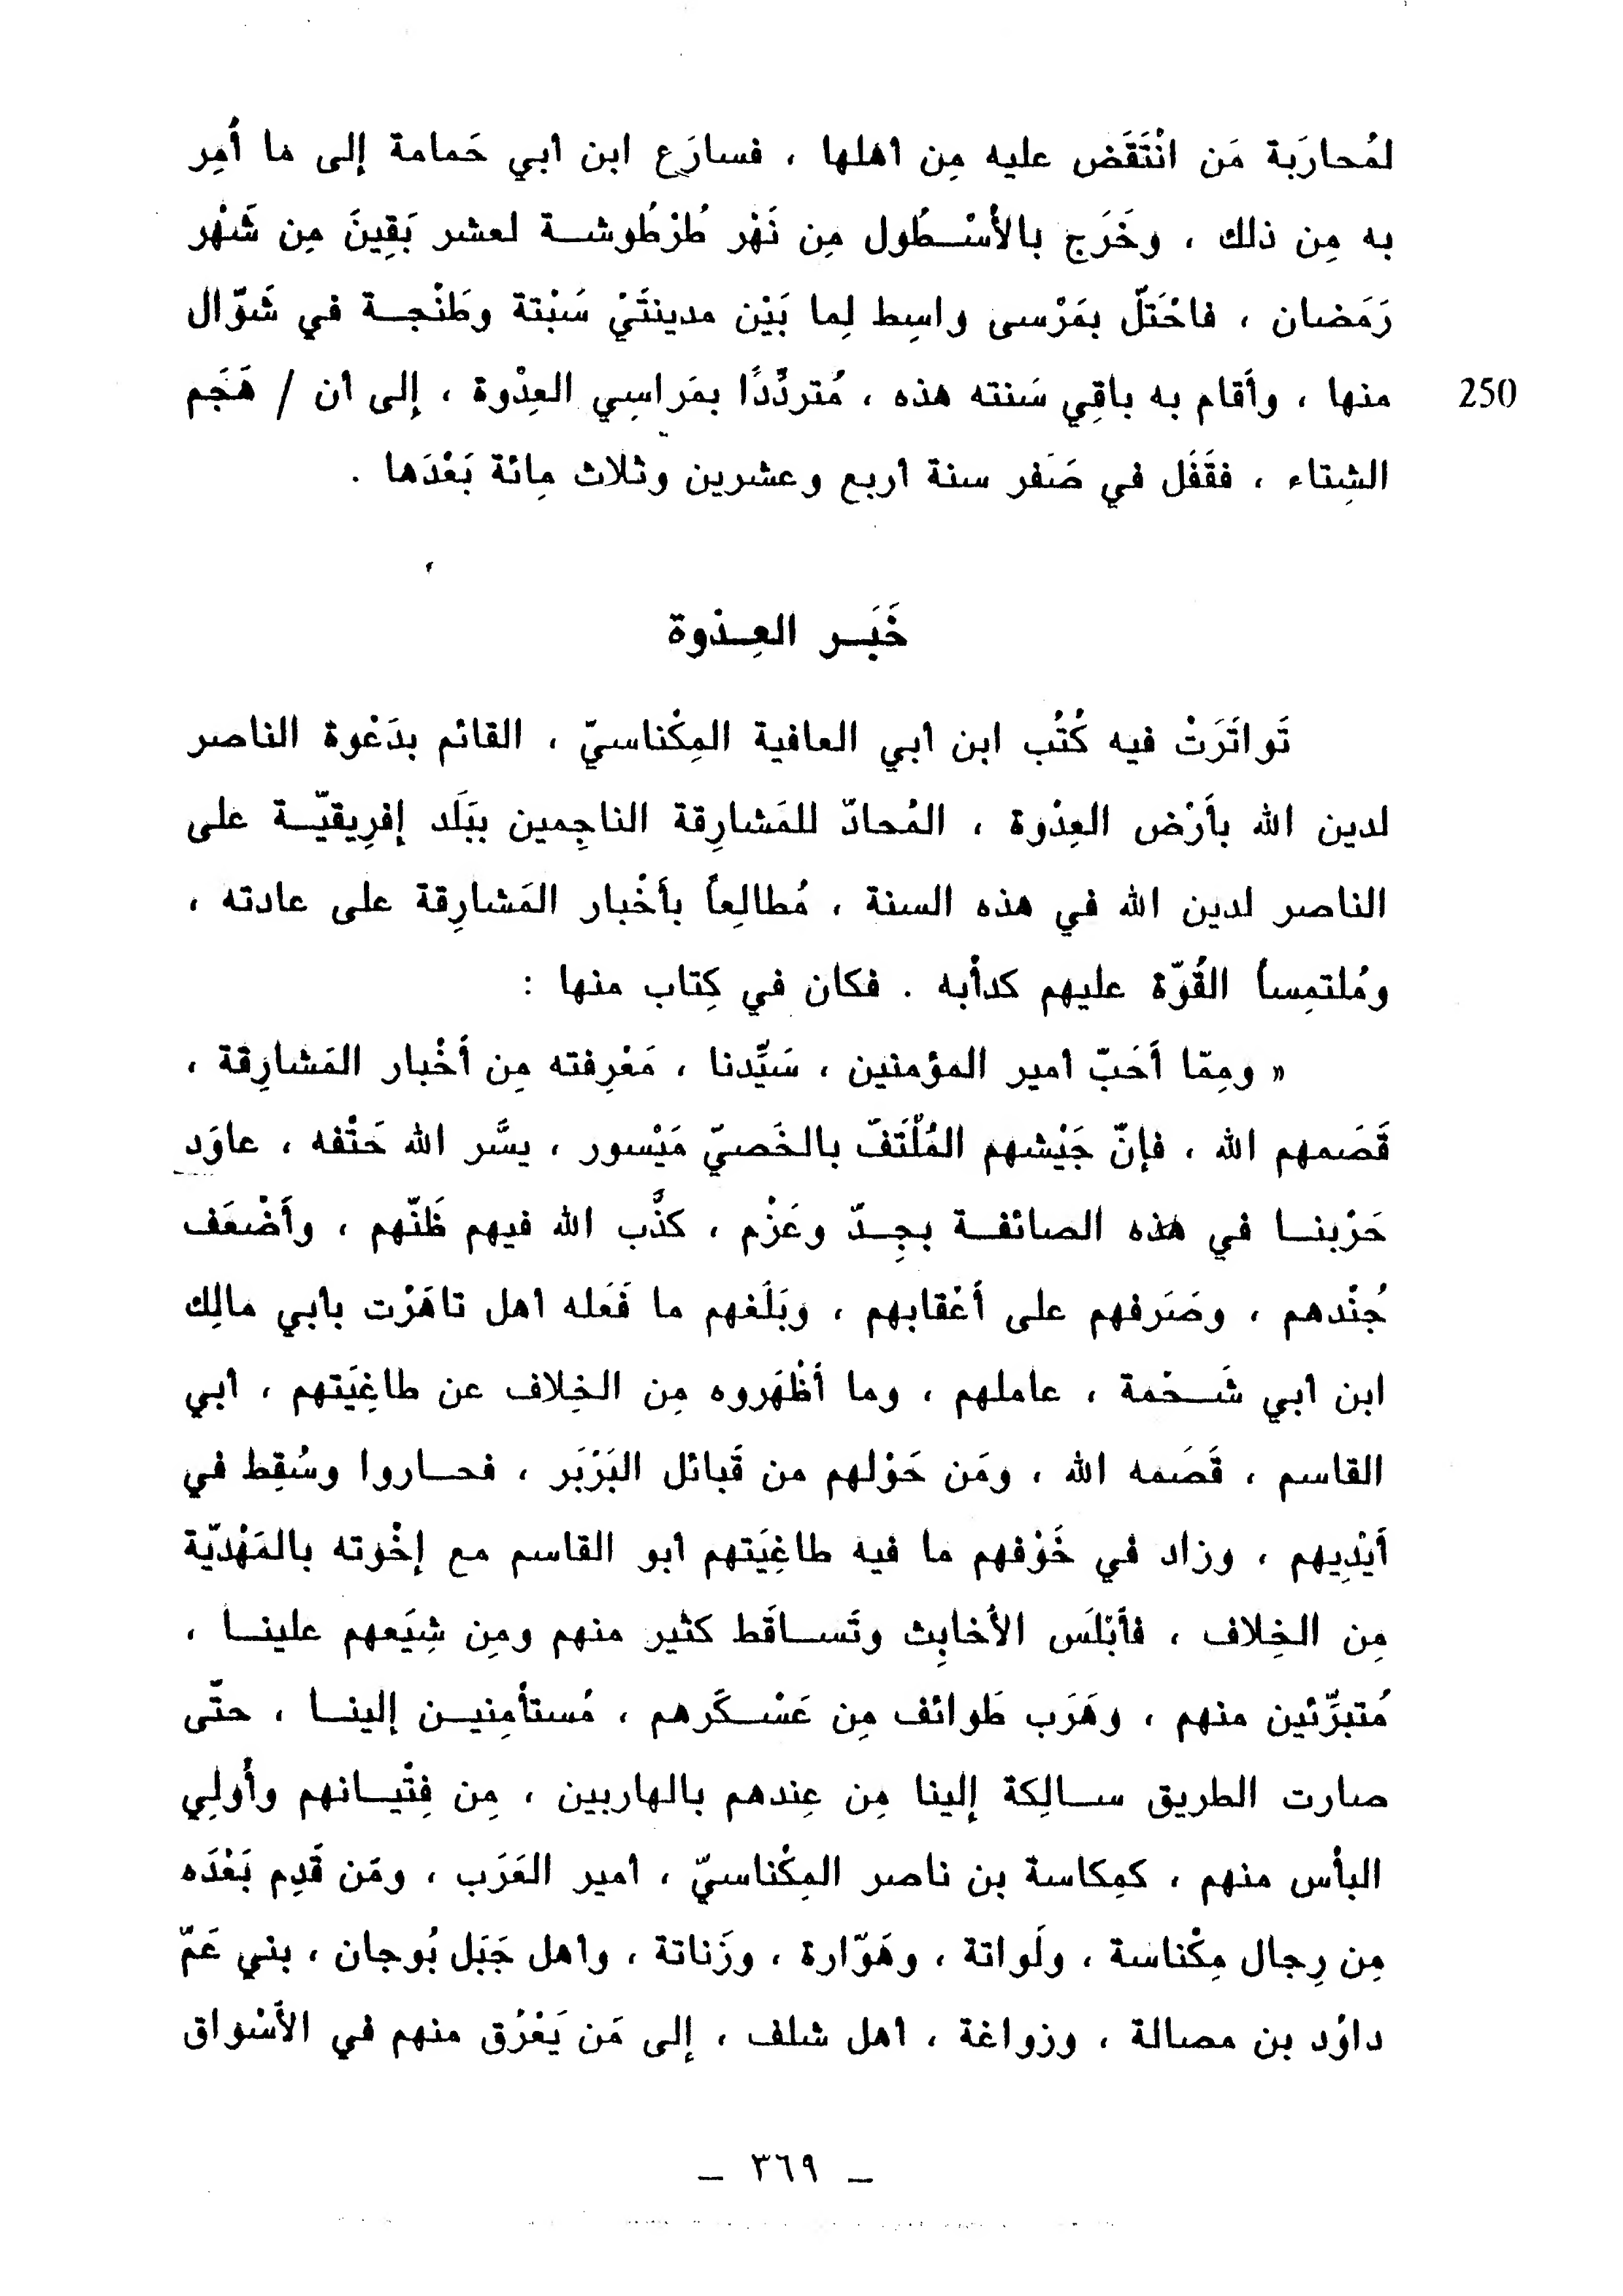 لمُحارَبة مَن انْتَقَض عليه مِن اهلها ، فسارَع ابن ابي حَمامة إلى ما أُمِر
به مِن ذلك ، وخَرَج بالأُسْطُول مِن نَهْر طُرْطُوشة لعشر بَقِينَ مِن شَهْر
رَمَضان ، فاحْتَلّ بمَرْسى واسِط لِما بَيْن مدينتَيْ سَبْتة وطَنْجة في شَوّال
منها ، وأَقام به باقِي سَنته هذه ، مُتردِّدًا بمَراسِي العِدْوة ، إلى ان / هَجَم
250
الشِتاء ، فقَفَل في صَفَر سنة اربع وعشرين وثلاث مِائة بَعْدَها .
خَبَر العِدْوة
تَواتَرَتْ فيه كُتُب ابن ابي العافية المِكْناسيّ ، القائم بدَعْوة الناصر
لدين الله بأَرْض العِدْوة ، المُحادّ للمَشارِقة الناجِمين ببَلَد إفرِيقيّة على
الناصر لدين الله في هذه السنة ، مُطالِعاً بأَخْبار المَشارِقة على عادته ،
ومُلتمِساً القُوّة عليهم كدأْبه . فكان في كِتاب منها :
« ومِمّا أَحَبّ امير المؤمنين ، سَيِّدنا ، مَعْرِفته مِن أَخْبار المَشارِقة ،
قَصَمهم الله ، فإنّ جَيْشهم المُلْتَفّ بالخَصيّ مَيْسور ، يسَّر الله حَتْفه ، عاوَد
حَرْبنا في هذه الصائفة بجِدّ وعَزْم ، كذَّب الله فيهم ظَنّهم ، وأَضْعَف
جُنْدهم ، وصَرَفهم على أَعْقابهم ، وبَلَغهم ما فَعَله اهل تاهَرْت بابي مالِك
ابن ابي شَحْمة ، عاملهم ، وما أَظْهَروه مِن الخِلاف عن طاغِيَتهم ، ابي
القاسم ، قَصَمه الله ، ومَن حَوْلهم من قَبائل البَرْبَر ، فحاروا وسُقِط في
أَيْدِيهم ، وزاد في خَوْفهم ما فيه طاغِيَتهم ابو القاسم مع إخْوته بالمَهْديّة
مِن الخِلاف ، فأَبْلَسَ الأَخابِث وتَساقَط كثير منهم ومِن شِيَعهم علينا ،
مُتبرِّئين منهم ، وهَرَب طَوائف مِن عَسْكَرهم ، مُستأمِنين إلينا ، حتّى
صارت الطريق سالِكة إلينا مِن عِندهم بالهاربين ، مِن فِتْيانهم وأُولِي
البأْس منهم ، كمِكاسة بن ناصر المِكْناسيّ ، امير العَرَب ، ومَن قَدِم بَعْدَه
مِن رِجال مِكْناسة ، ولَواتة ، وهَوّارة ، وزَناتة ، واهل جَبَل بُوجان ، بني عَمّ
داوُد بن مصالة ، وزواغة ، اهل شلف ، إلى مَن يَغْرُق منهم في الأَسْواق
– ٣٦٩ –